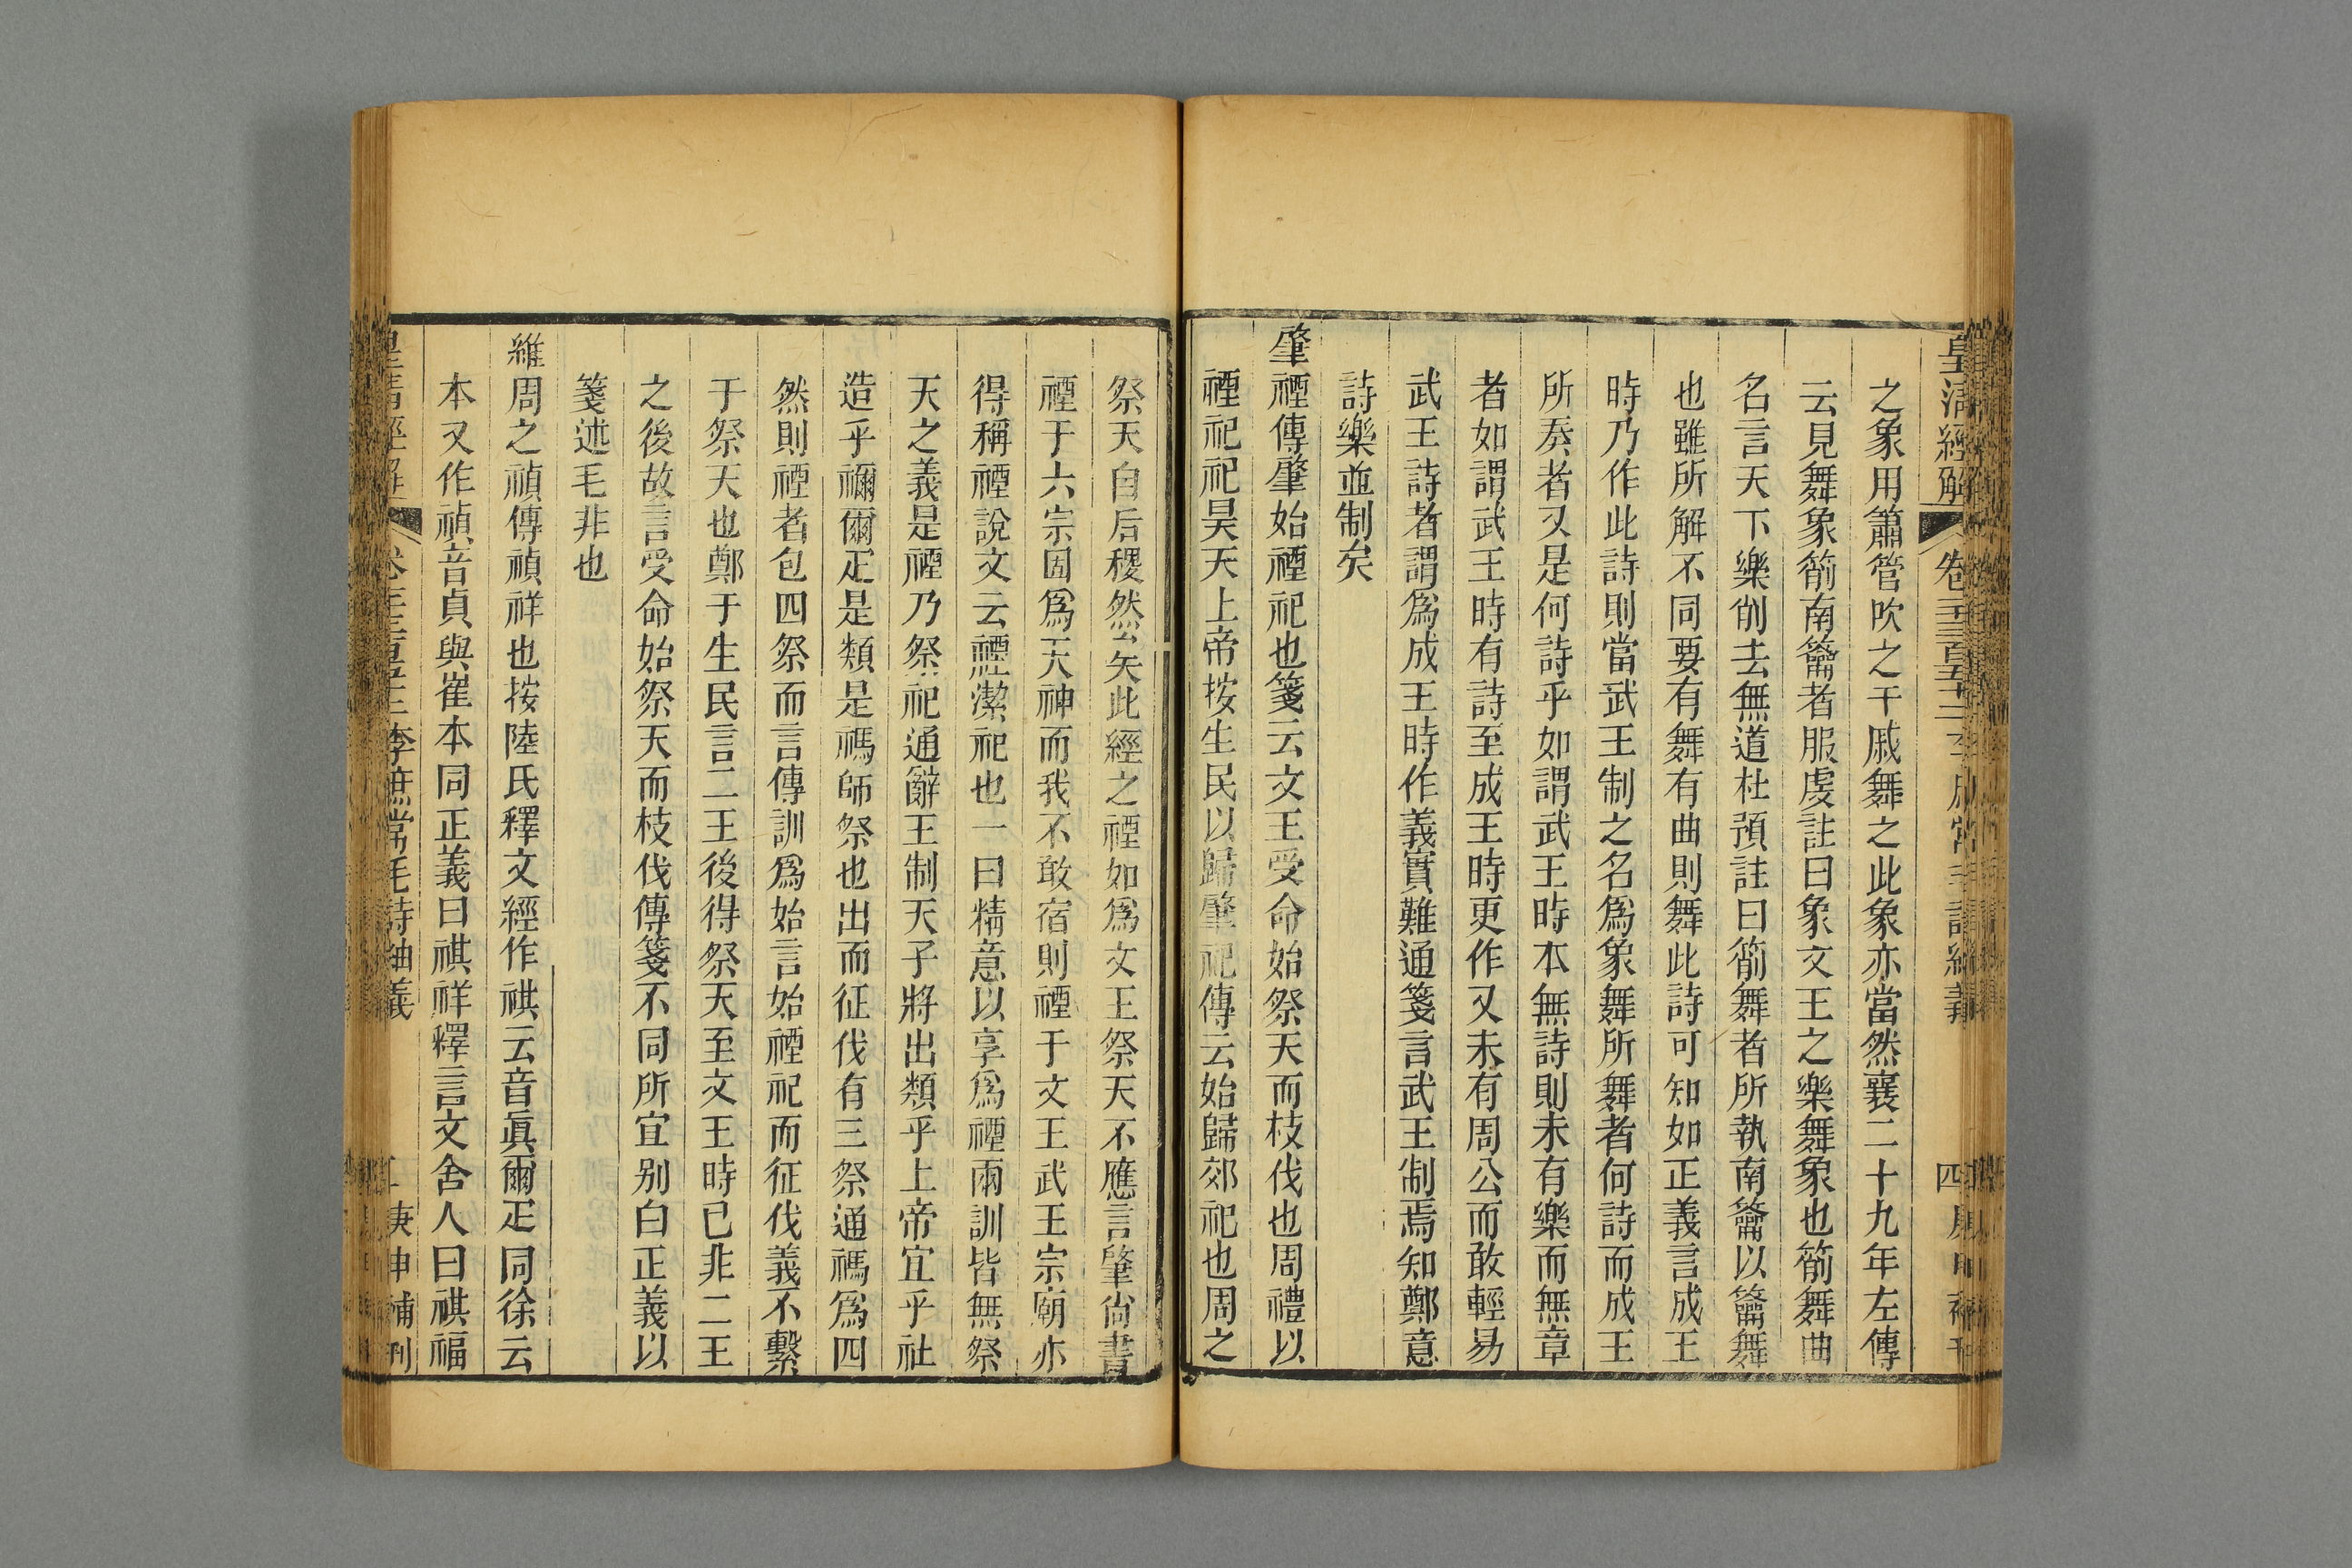 皇清經解
之象用簫管吹之干戚舞之此象亦當然襄二十九年左傳
云見舞象箾南籥者服虔註曰象文王之樂舞象也箾舞曲
名言天下樂削去無道杜預註曰箾舞者所執南籥以籥舞
也雖所解不同要有舞有曲則舞此詩可知如正義言成王
時乃作此詩則當武王制之名爲象舞所舞者何詩而成王
所奏者又是何詩乎如謂武王時本無詩則未有樂而無章
者如謂武王時有詩至成王時更作又未有周公而敢輕易
武王詩者謂爲成王時作義實難通箋言武王制焉知鄭意
詩樂並制矣
肈禋傳肈始禋祀也箋云文王受命始祭天而枝伐也周禮以
禋祀祀昊天上帝按生民以歸肈祀傳云始歸郊祀也周之
祭天自后稷然矣此經之禋如爲文王祭天不應言肈尙書
禋于六宗固爲天神而我不敢宿則禋于文王武王宗廟亦
得稱禋說文云禋潔祀也一曰精意以享爲禋兩訓皆無祭
天之義是禋乃祭祀通辭王制天子將出類乎上帝宜乎社
造乎禰爾疋是類是禡師祭也出而征伐有三祭通禡爲四
然則禋者包四祭而言傳訓爲始言始禋祀而征伐義不繫
于祭天也鄭于生民言二王後得祭天至文王時已非二王
之後故言受命始祭天而枝伐傳箋不同所宜别白正義以
箋述毛非也
維周之禎傳禎祥也按陸氏釋文經作祺云音眞爾疋同徐云
本又作禎音貞與崔本同正義曰祺祥釋言文舍人曰祺福
李庶常毛詩紬義
庚申補刊